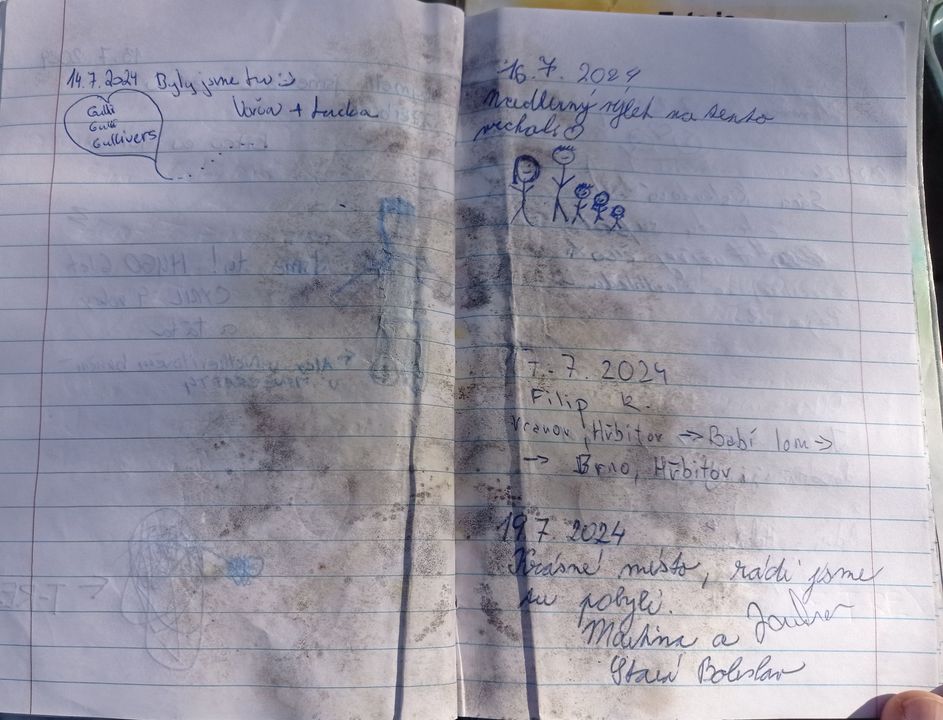 14.7.2024 Byly jsme tu :)
Verča + Lucka
Gulli
Gulli
Gullivers
16.7. 2024
Nádherný výlet na tento
vrchol
17.7.2024
Filip K.
Vranov, Hřbitov → Babí lom →
→ Brno, Hřbitov.
19.7 2024
Krásné místo, rádi jsme
tu pobyli.
Martina a
Stará Boleslav